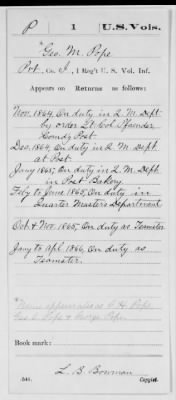 P 1 U.S. Vols.
Geo. M. Pope
Pvt., Co. I, 1 Reg't U. S. Vol. Inf.
Appears on Returns as follows:
Nov. 1864, On duty in Q. M. Dept
by order Lt. Col Pfaender
Comdg Post
Dec. 1864, On duty in Q. M. Dept.
at Post
Jany 1865, On duty in Q. M. Dept.
in Post Bakery
Feby to June 1865, On duty in
Quarter Masters Department
Oct. & Nov. 1865, On duty as Teamster
Jany to Apl. 1866, On duty as
Teamster.
Name appears also as G. H. Pope
Geo. Pope & George Pope
Book mark:
L. B. Bowman
(546) Copyist.